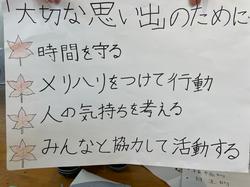 「大切な思い出」のために
時間を守る
メリハリをつけて行動
人の気持ちを考える
みんなと協力して活動する